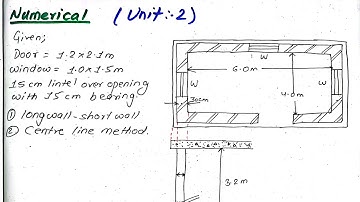 Numerical (Unit:-2)
Given;
Door = 1.2 x 2.1m
window = 1.0 x 1.5m
15cm lintel over opening
with 15cm bearing
① long wall - short wall
② Centre line method.
W
6.0m
W
W
4.0m
30cm
3.2m